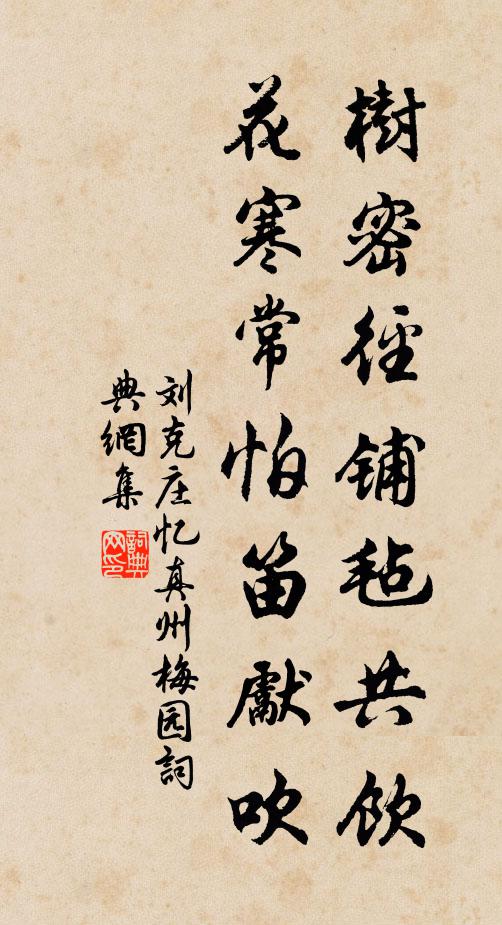 樹密徑铺毡共饮
花寒常怕笛獻吹
刘克庄忆真州梅园詞
典網集
詞典网印